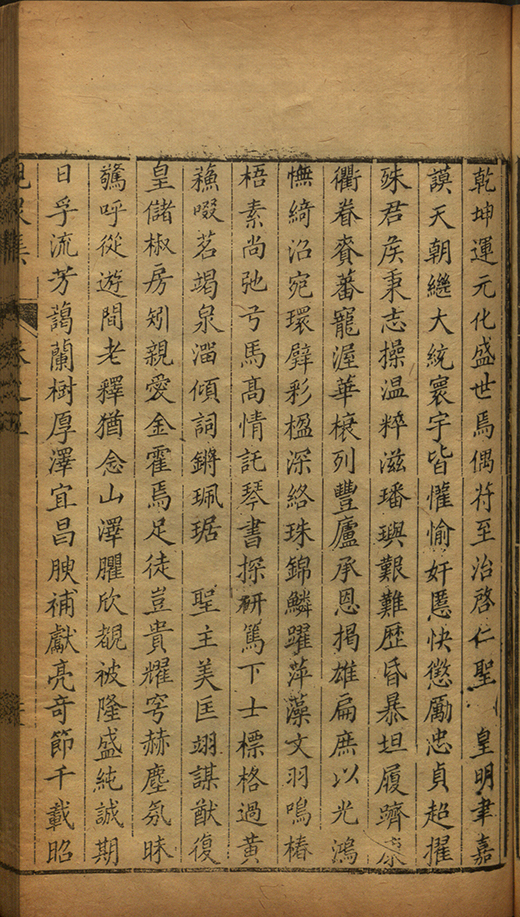 乾坤運元化盛世焉偶符至治啓仁聖　皇明聿嘉
謨天朝繼大統寰宇皆懽愉奸慝快懲勵忠貞超擢
殊君侯秉志操温粹滋璠璵艱難歷昏暴坦履躋康
衢眷賚蕃寵渥華榱列豐廬承恩揭雄扁庶以光鴻
憮綺沼宛環壁彩楹深絡珠錦鱗躍萍藻文羽鳴椿
梧素尚弛弓馬高情託琴書探研篤下士標格過黄
穐啜茗竭泉湽傾詞鏘珮琚　聖主美匡翊謀猷復
皇儲椒房矧親愛金霍焉足徒豈貴耀穹赫塵氛昧
驚呼從遊間老釋猶念山澤臞欣覩被隆盛純誠期
日孚流芳藹蘭樹厚澤宜昌腴補獻亮奇節千載昭
峴泉集　卷之